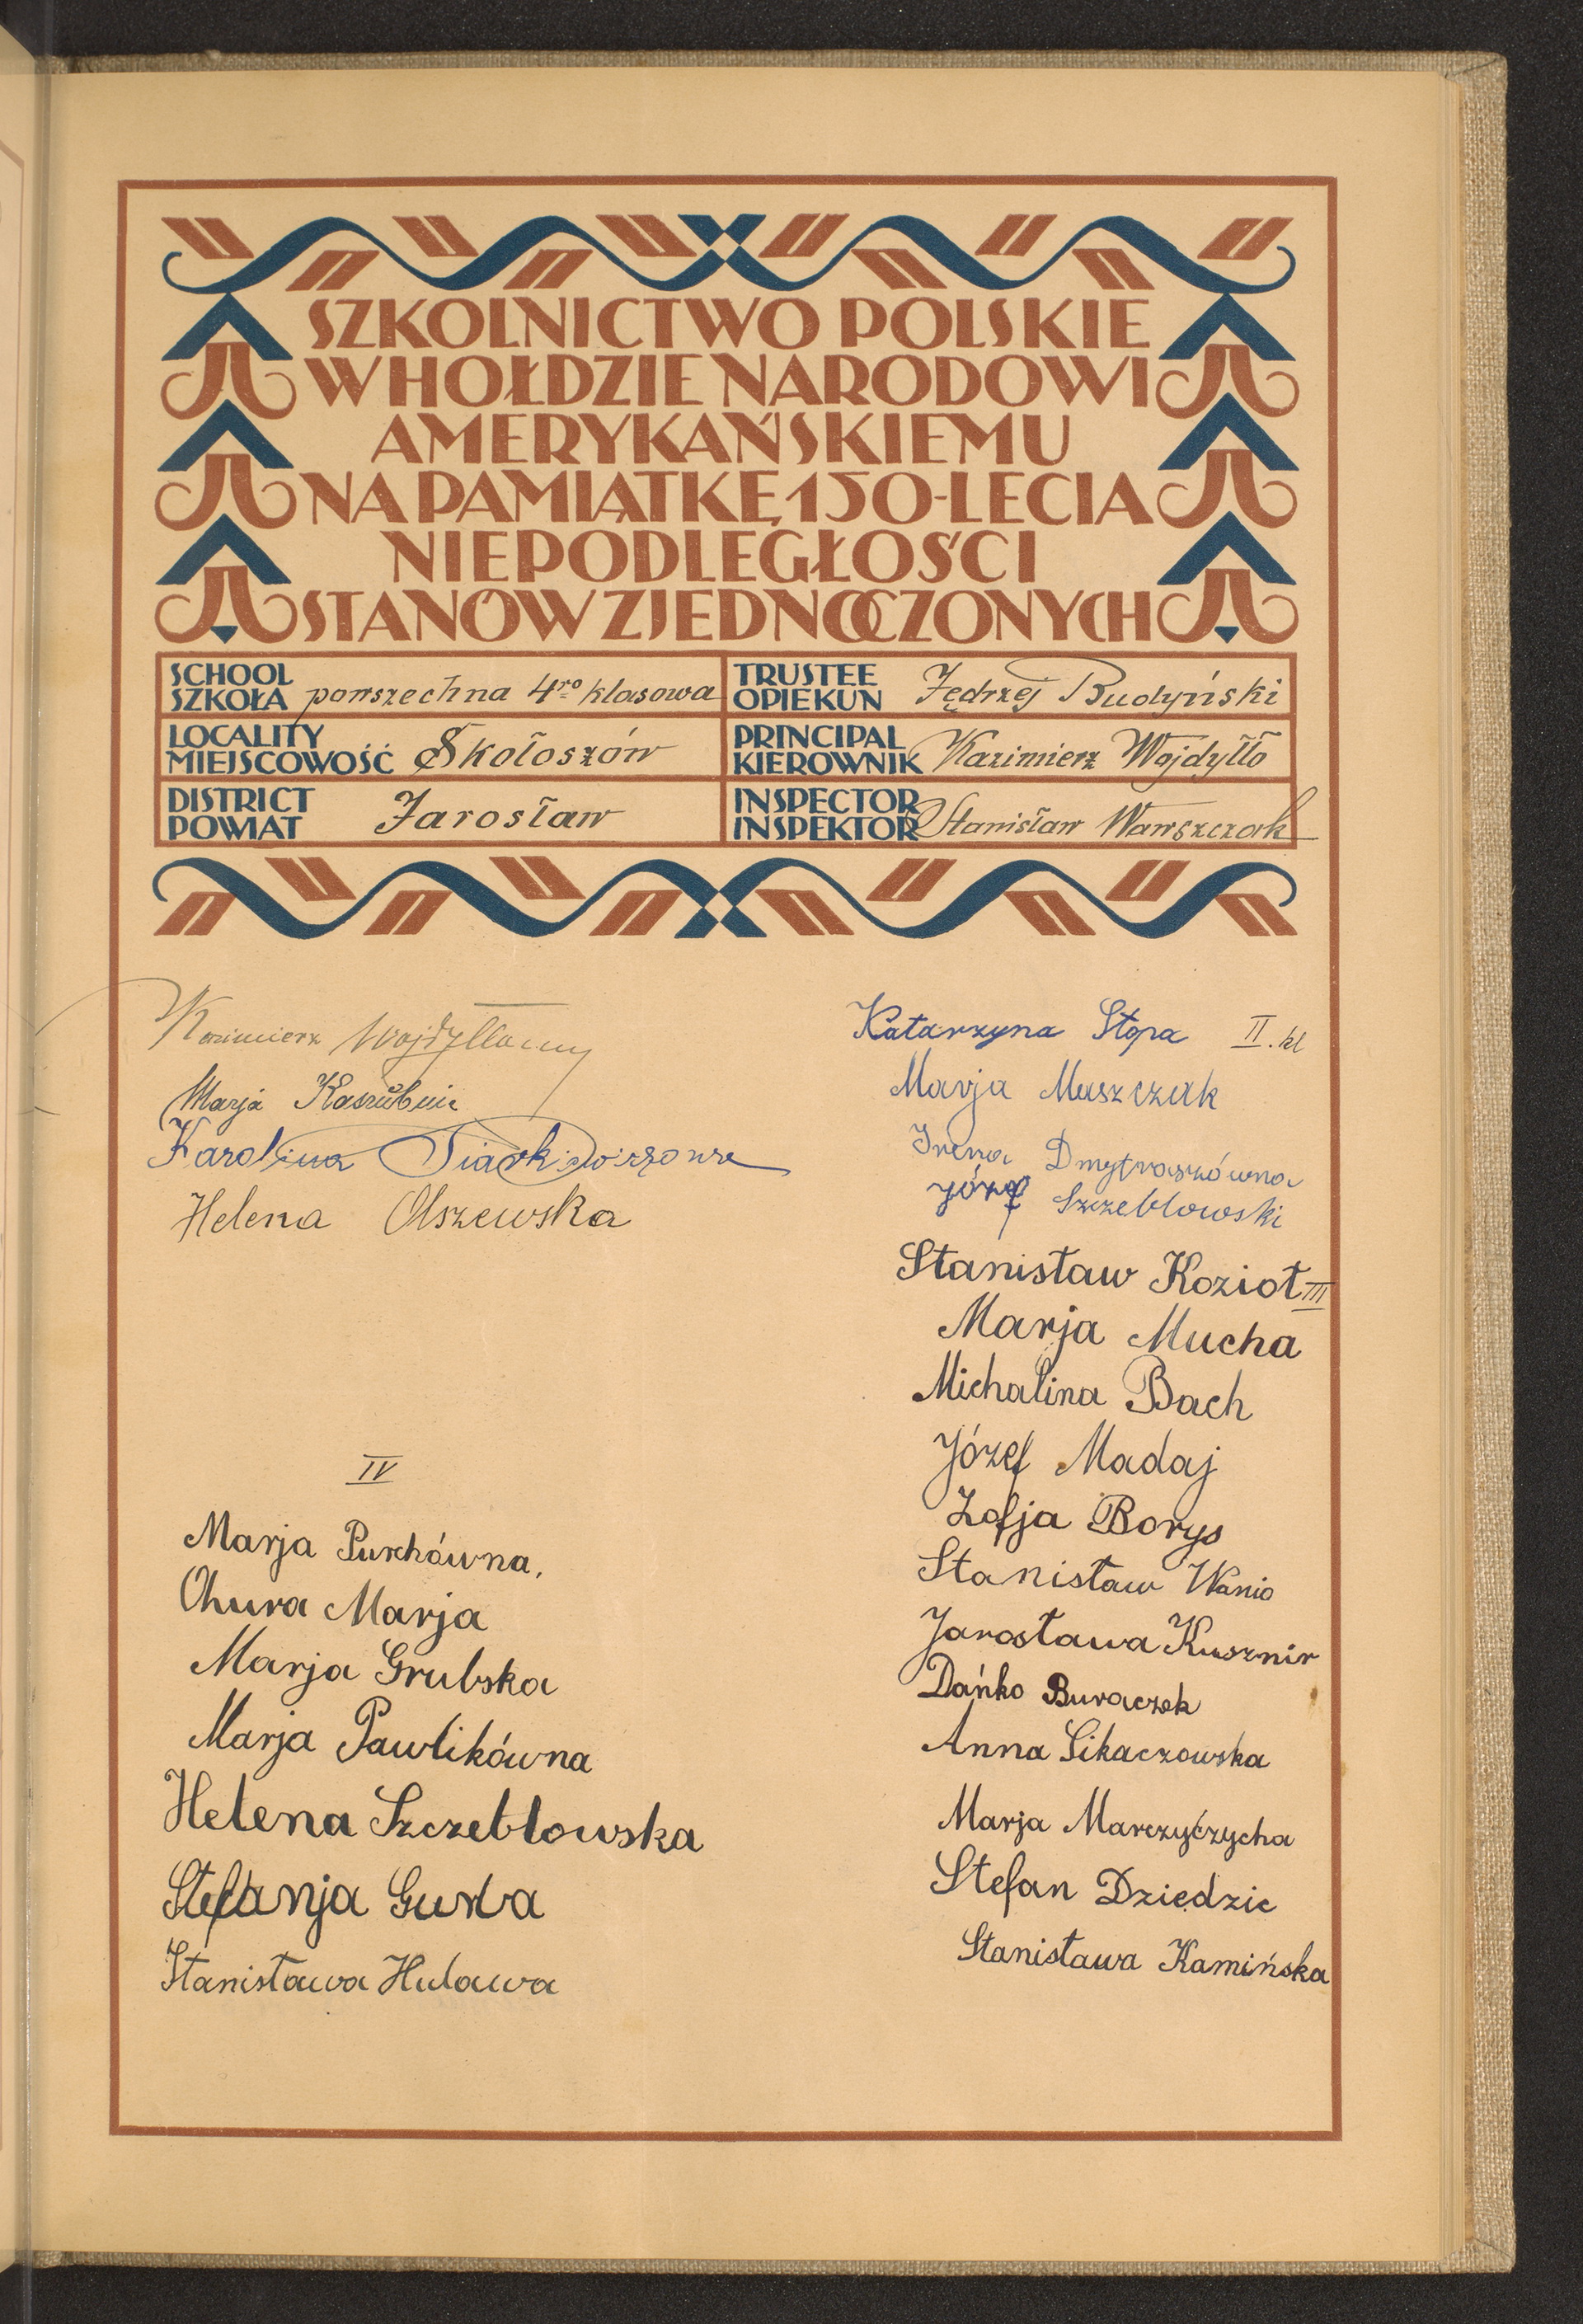 SZKOLNICTWO POLSKIE
W HOŁDZIE NARODOWI
AMERYKAŃSKIEMU
NA PAMIĄTKĘ 150-LECIA
NIEPODLEGŁOŚCI
STANÓW ZJEDNOCZONYCH
SCHOOL
SZKOŁA powszechna 4ro klasowa
TRUSTEE
OPIEKUN Jędrzej Budyński
LOCALITY
MIEJSCOWOŚĆ Skołoszów
PRINCIPAL
KIEROWNIK Kazimierz Wojdyłło
DISTRICT
POWIAT Jarosław
INSPECTOR
INSPEKTOR Stanisław Wawszczak
Kazimierz
Marja
Karolina
Helena Olszewska
IV
Marja Purchówna.
Chura Marja
Marja Grubska
Marja Pawlikówna
Helena Szczebłowska
Stefanja Guzba
Stanisława Huława
Katarzyna Stopa II. kl
Marja Muszczak
Irena Dmytraszówna
Józef Szczebłowski
Stanisław Kozioł III
Marja Mucha
Michalina Bach
Józef Madaj
Zofja Borys
Stanisław Wanio
Jarosława Kusznir
Dańko Buraczek
Anna Sikaczowska
Marja Marczyczycha
Stefan Dziedzic
Stanisława Kamińska